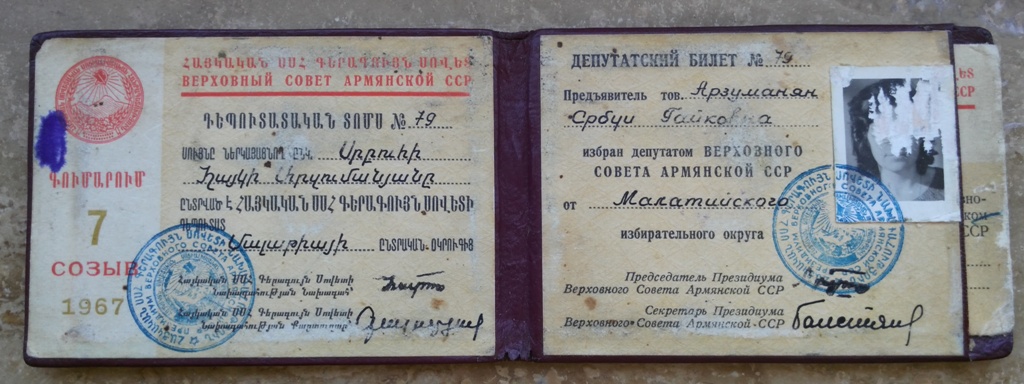 ՀԱՅԿԱԿԱՆ ՍՍՀ ԳԵՐԱԳՈՒՅՆ ՍՈՎԵՏ
ВЕРХОВНЫЙ СОВЕТ АРМЯНСКОЙ ССР
ԴԵՊՈՒՏԱՏԱԿԱՆ ՏՈՄՍ № 79
ՍՈՒՅՆԸ ՆԵՐԿԱՅԱՑՆՈՂ ԸՆԿ. Սրբուհի
Հայկի Արզումանյանը
ԸՆՏՐՎԱԾ Է ՀԱՅԿԱԿԱՆ ՍՍՀ ԳԵՐԱԳՈՒՅՆ ՍՈՎԵՏԻ
ԴԵՊՈՒՏԱՏ
Մալաթիայի ԸՆՏՐԱԿԱՆ ՕԿՐՈՒԳԻՑ
Հայկական ՍՍՀ Գերագույն Սովետի
Նախագահության Նախագահ
Հայկական ՍՍՀ Գերագույն Սովետի
Նախագահության Քարտուղար
ԳՈՒՄԱՐՈՒՄ
7
СОЗЫВ
1967
ДЕПУТАТСКИЙ БИЛЕТ № 79
Предъявитель тов. Арзуманян
Србуи Гайковна
избран депутатом ВЕРХОВНОГО
СОВЕТА АРМЯНСКОЙ ССР
от Малатийского
избирательного округа
Председатель Президиума
Верховного Совета Армянской ССР
Секретарь Президиума
Верховного Совета Армянской ССР